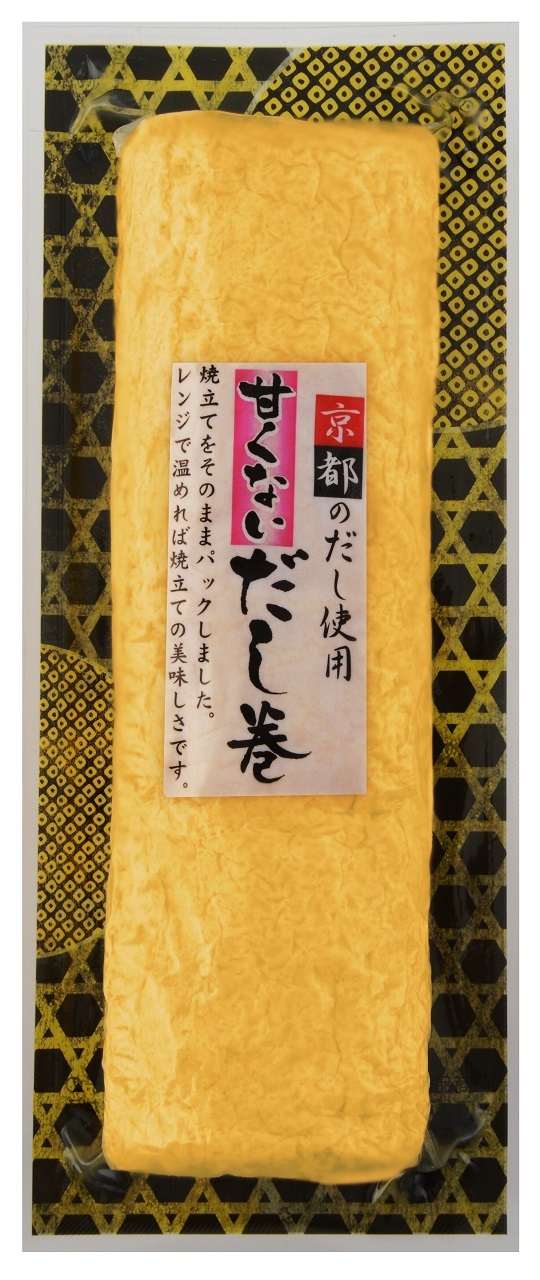 京都のだし使用
甘くない
だし巻
焼立てをそのままパックしました。
レンジで温めれば焼立ての美味しさです。